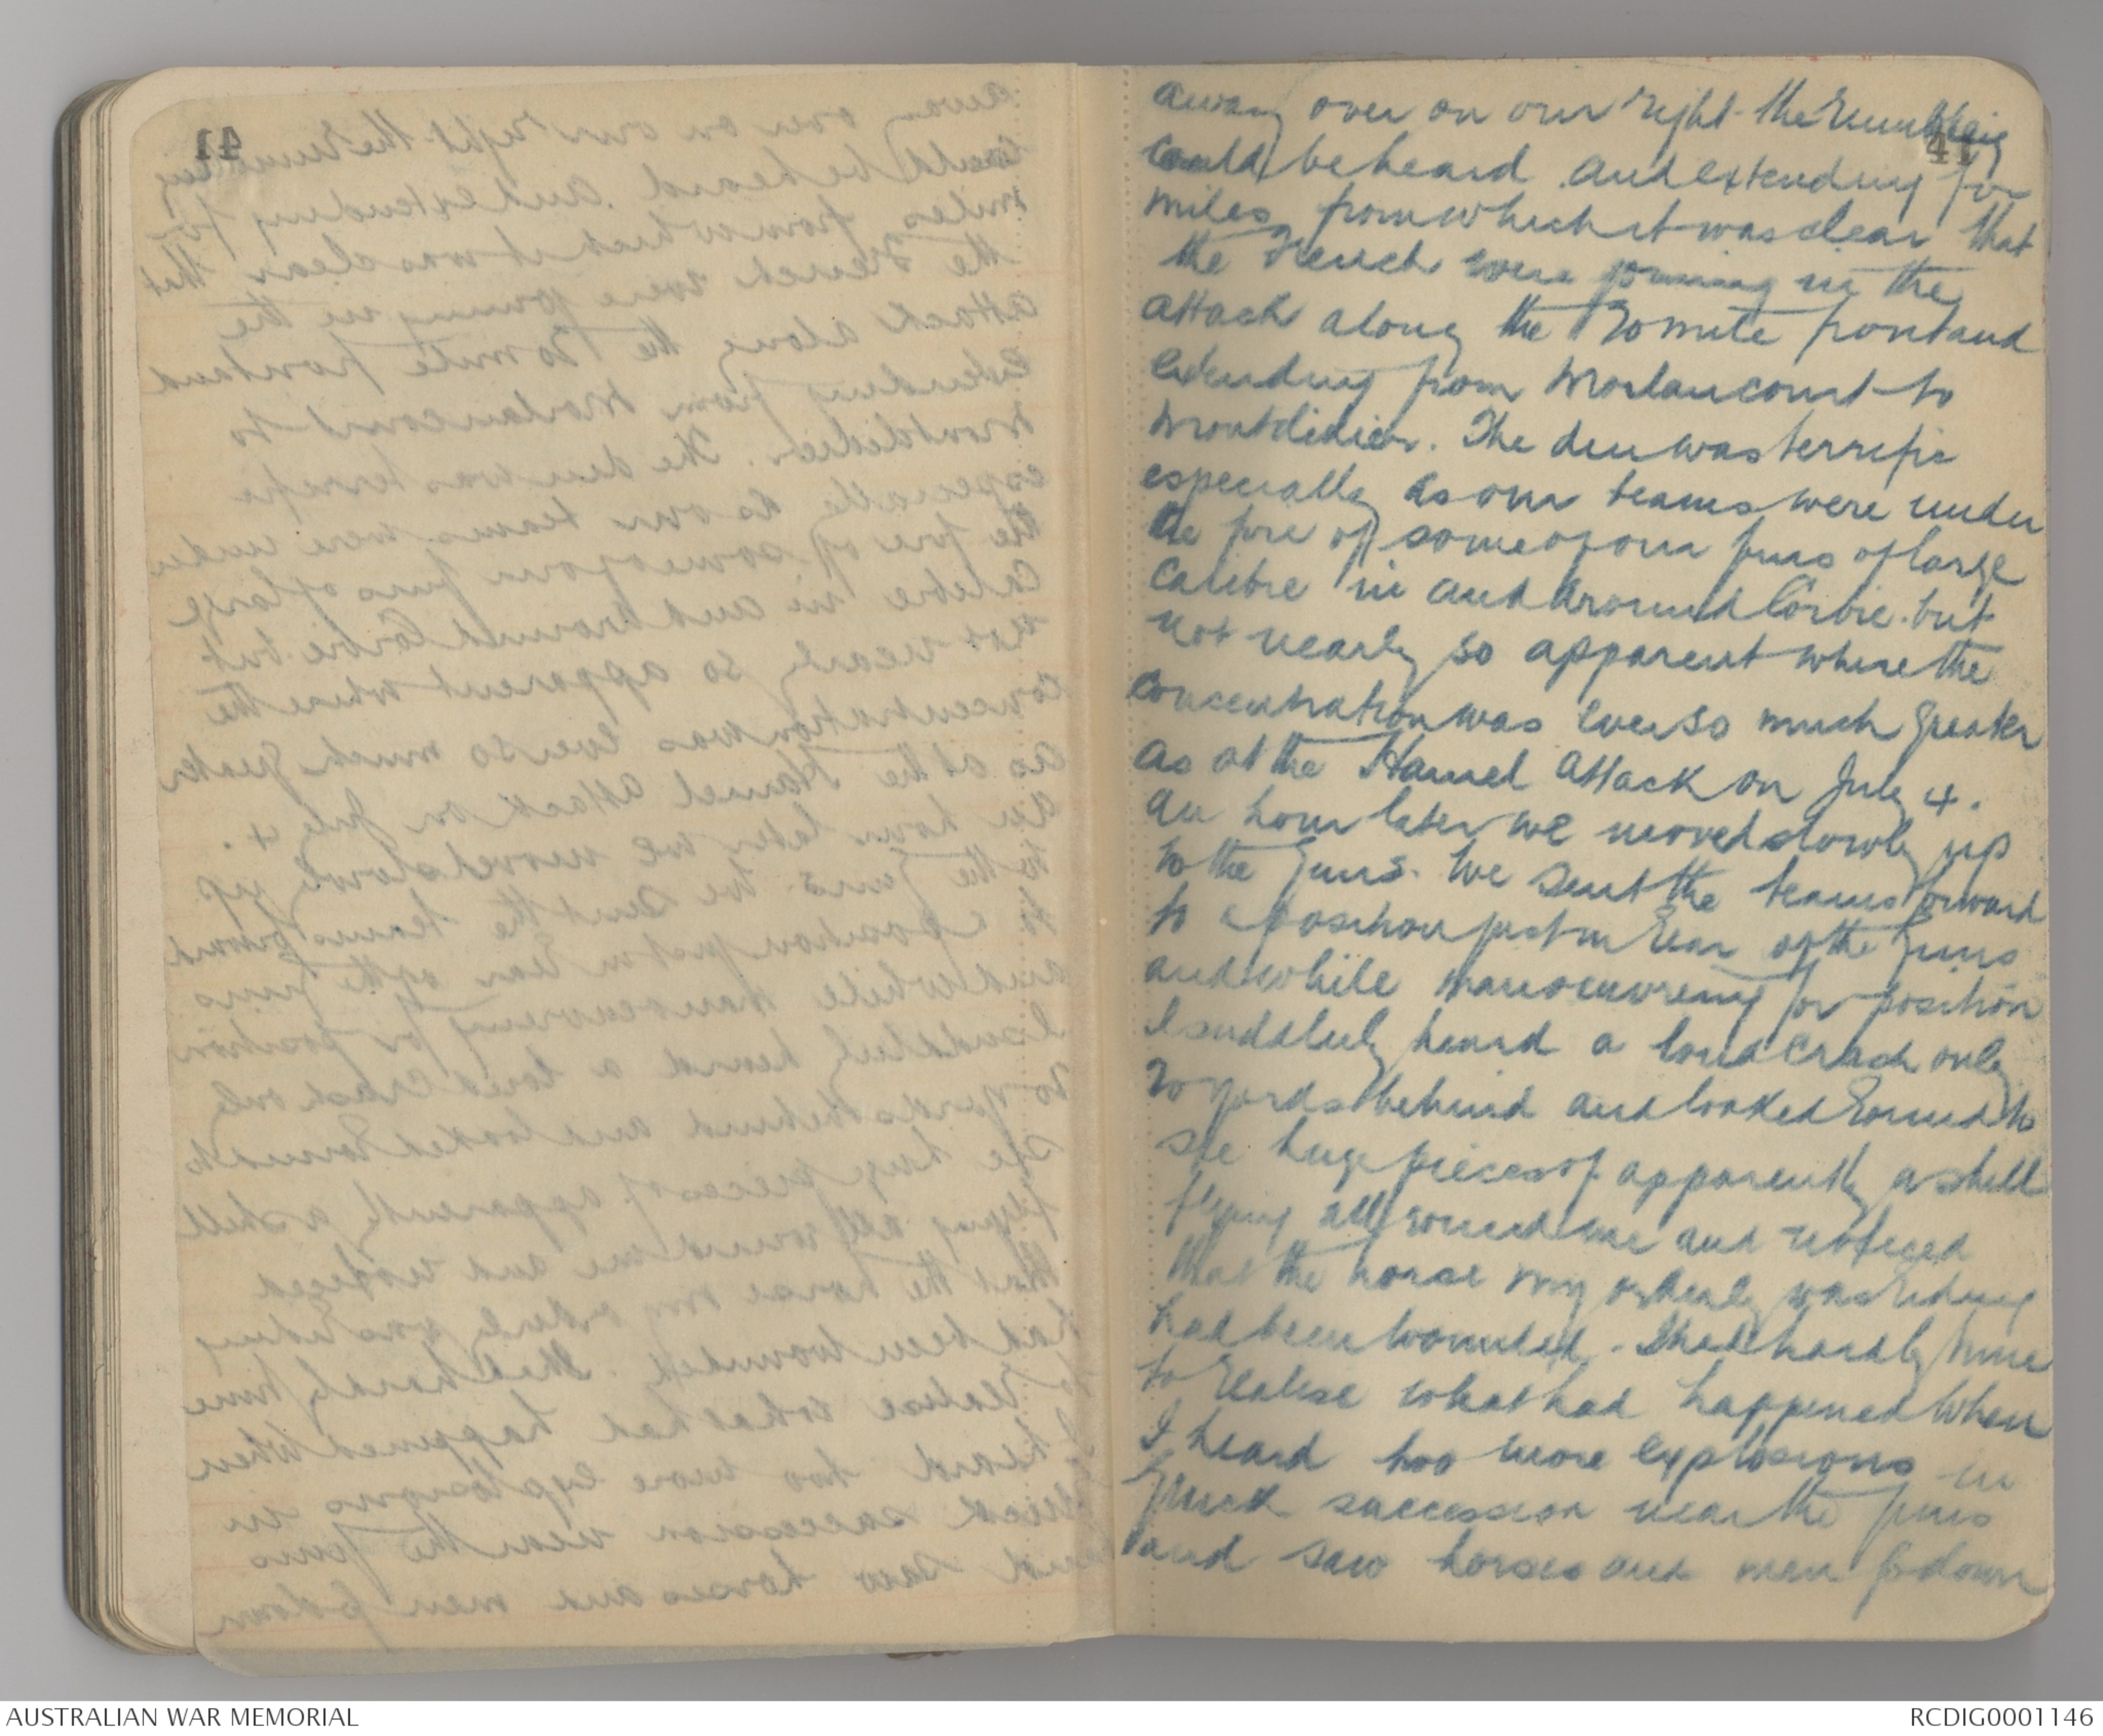 41
away over on our right the rumbling
could be heard and extending for
miles from which it was clear that
the French were joining in the
attack along the 20 mile front and
extending from Morlancourt to
Montdidier. The din was terrific
especially as our teams were under
the fire of some of our guns of large
calibre in and around Corbie. but
not nearly so apparent where the
concentration was ever so much greater
as at the Hamel attack on July 4.
An hour later we moved slowly up
to the guns. We sent the teams forward
to a position just in rear of the guns
and while manoeuvreing for position
I suddely heard a loud crash only
20 yards behind and looked round to
see huge pieces of apparently a shell
flying all round me and noticed
that the horse my orderly was riding
had been wounded. I had hardly time
to realise what had happened when
I heard two more explosions in
quick succession near the guns
and saw horses and men go down
AUSTRALIAN WAR MEMORIAL
RCDIG0001146